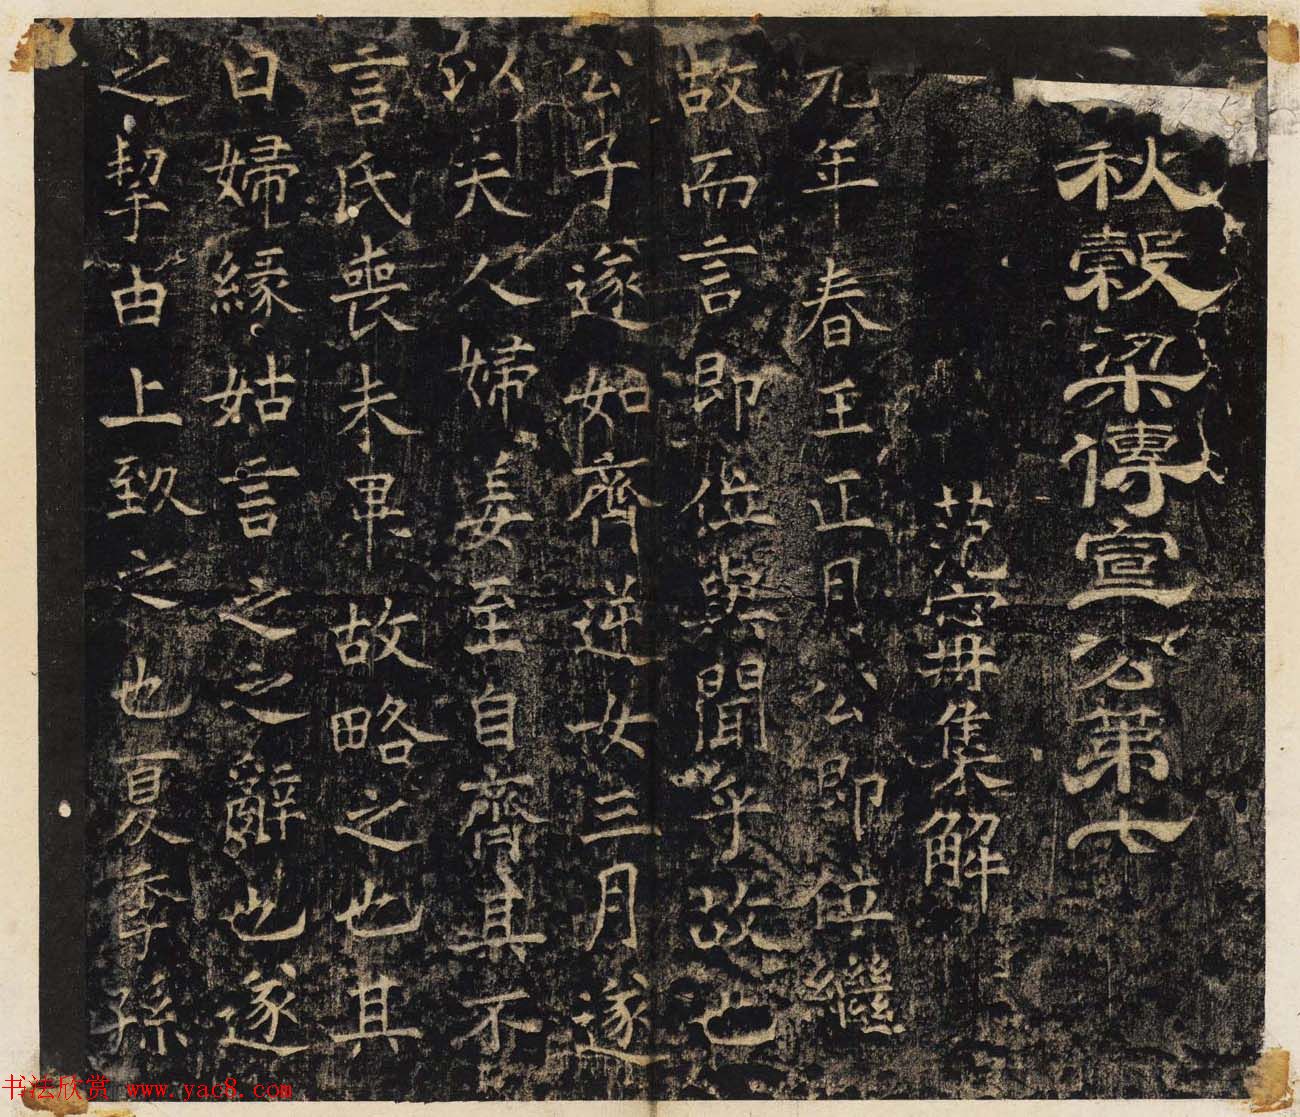 秋穀梁傳宣公第七
范甯集解
元年春王正月公即位繼
故而言即位與聞乎故也
公子遂如齊逆女三月遂
以夫人婦姜至自齊其不
言氏喪未畢故略之也其
曰婦緣姑言之之辭也遂
之挈由上致之也夏季孫
书法欣赏 www.yac8.com